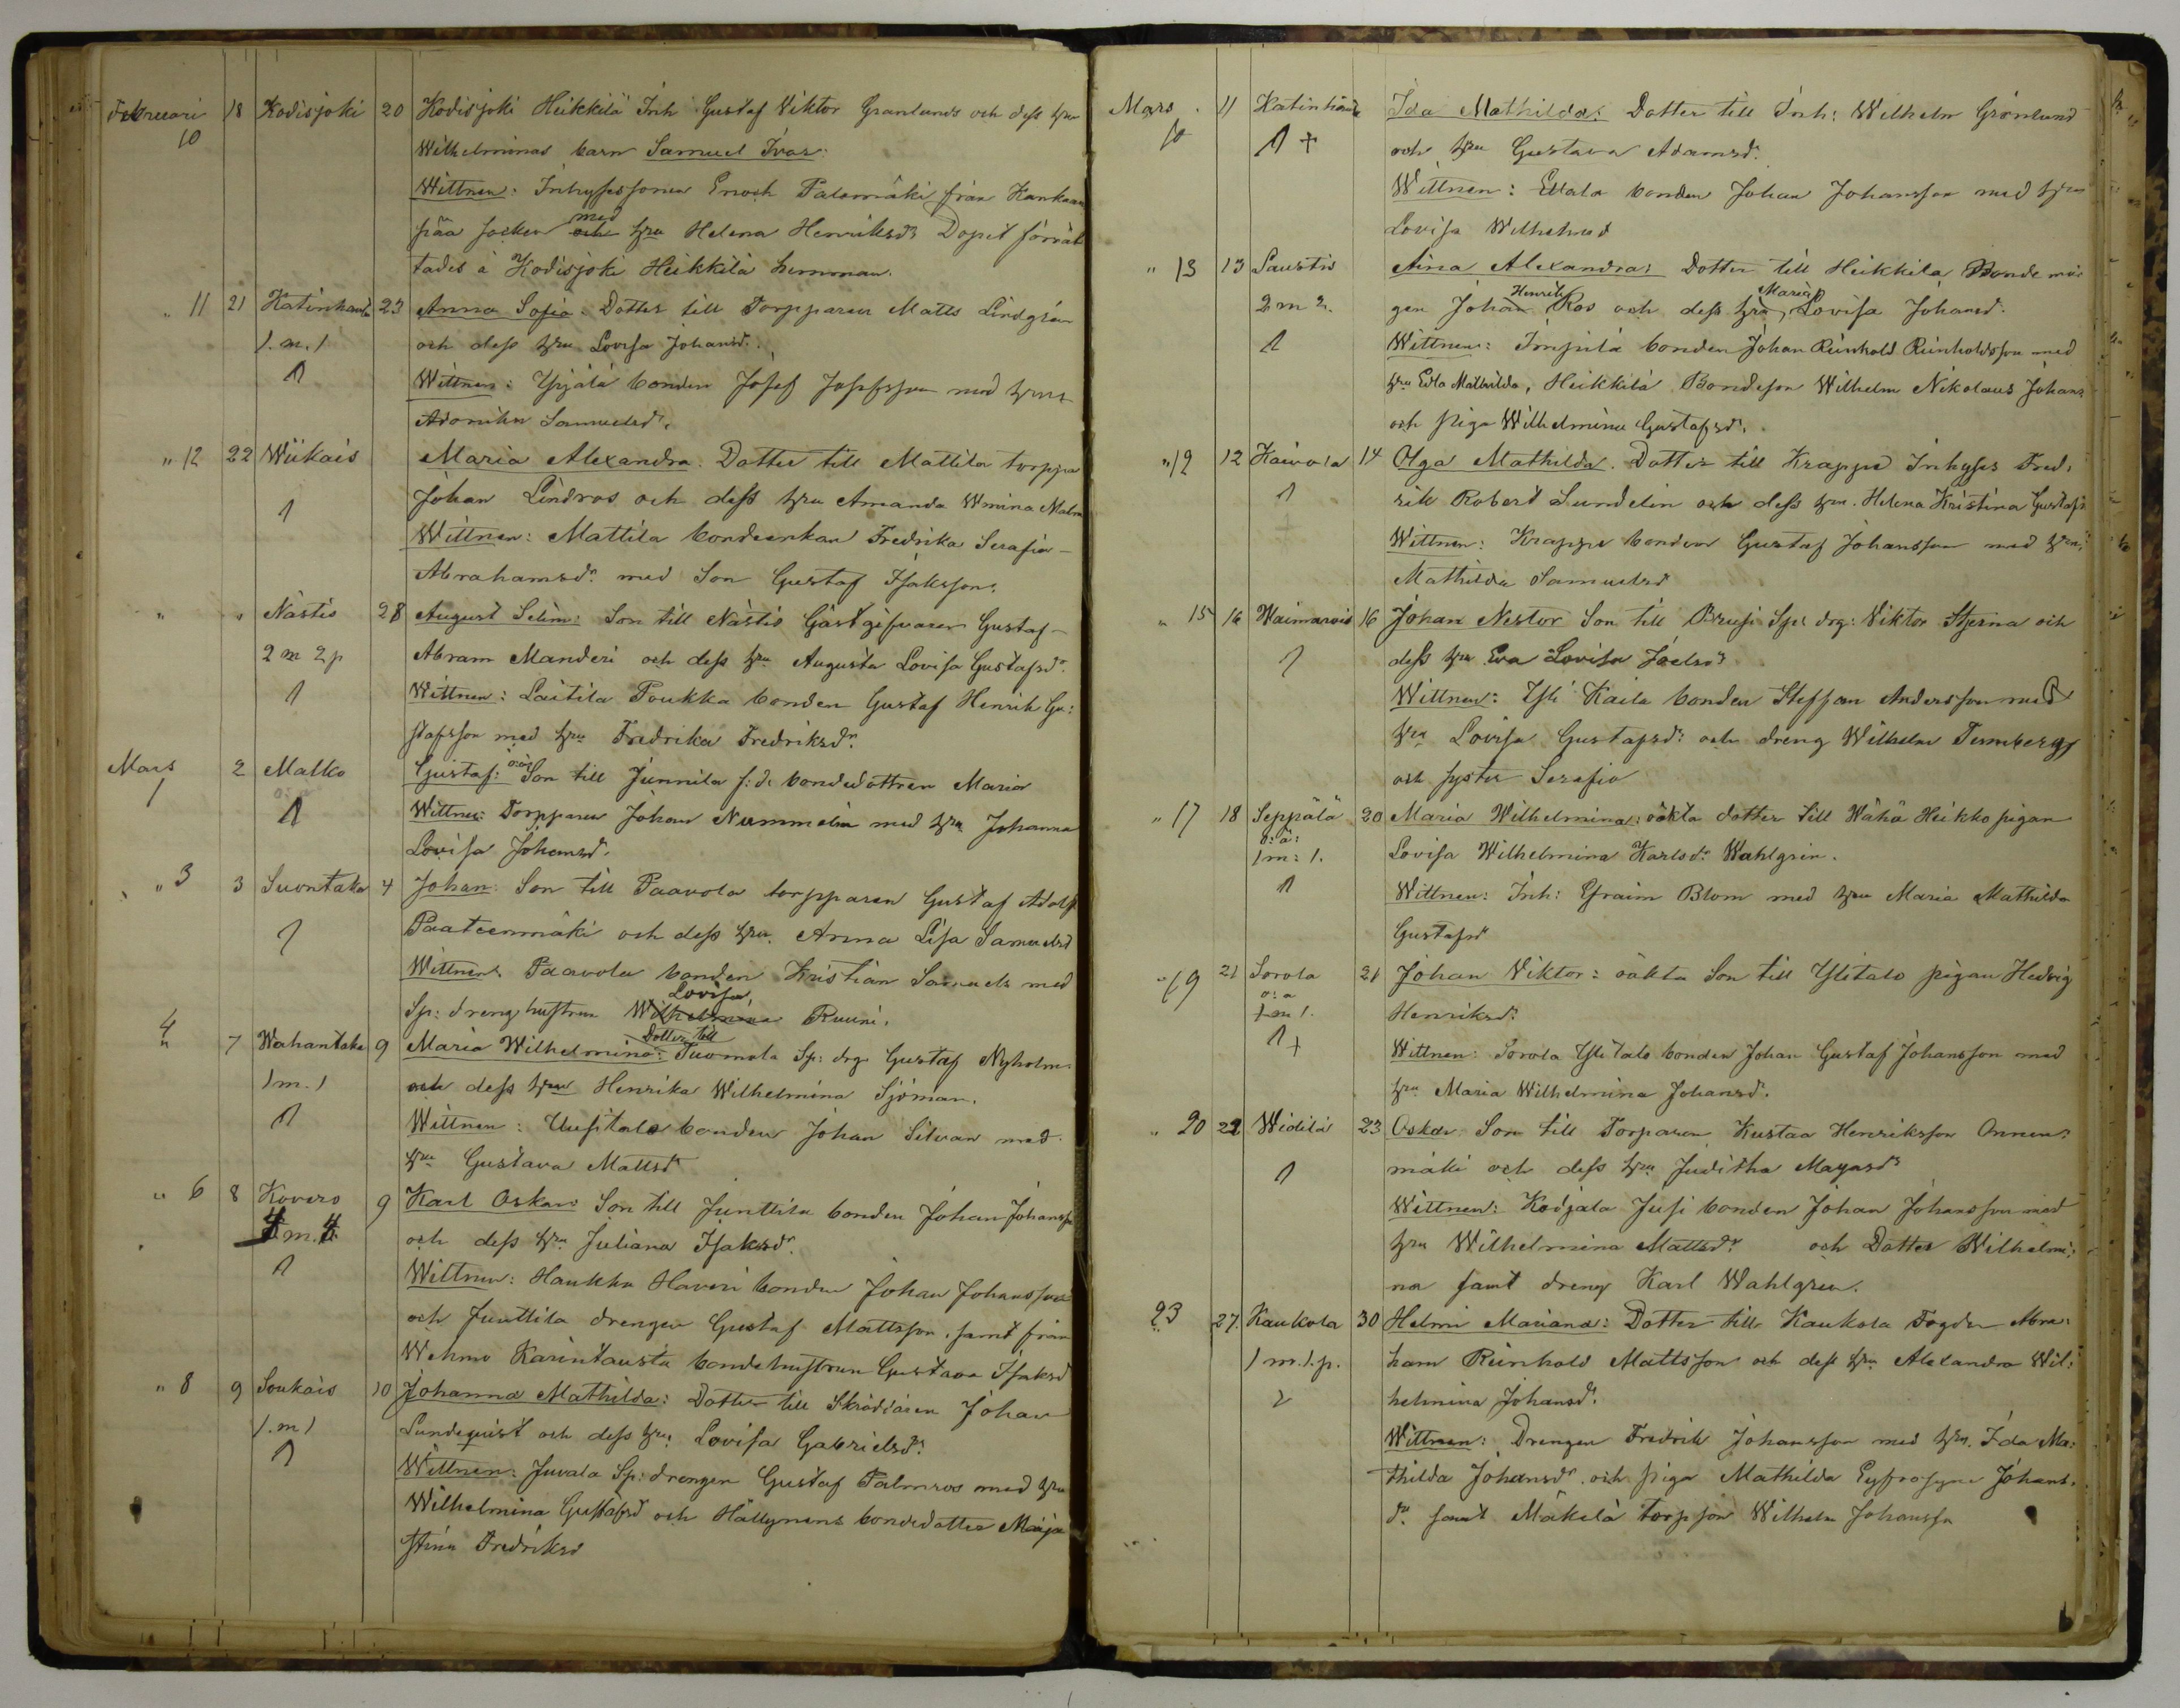 Februari 18 Kodisjoki 20 Kodisjoki Heikkilä Inh Gustaf Viktor Granlunds och dess hru
10 Wilhelminas barn Samuel Ivar:
Wittnen: Inhysessonen Enoch Palomäki från Kankaan
pää socken och med hru Helena Henriksdr Dopet förrät
tades å Kodisjoki Heikkilä hemman.
" 11 21 Katinhänta 23 Anna Sofia: Dotter till Torpparen Matts Lindgren
1.m.1 och dess hru Lovisa Johansd.
1 Wittnen: Ypjälä bonden Josef Josefsson med hru
Samuelsdr.
" 12 22 Wiikais Maria Alexandra. Dotter till Mattila torppa
Johan Lindros och dess hru Amanda Wmina Malm
1 Wittnen: Mattila bondeenkan Fredrika Serafia
Abrahamsdr med Son Gustaf Isaksson.
" " Nästis 28 August Selim: Son till Nästis Gästgifvaren Gustaf
2 m 2 p Abram Manderi och dess hru Augusta Lovisa Gustafsdr
1 Wittnen: Laitila Poukka bonden Gustaf Henrik Gu:
stafsson med hru Fredrika Fredriksdr.
Mars 2 Malko Gustaf: o:ä: Son till Junnila f:d. bondedottren Maria
1 1 Wittnen: Torpparen Johan Nummelin med hru Johanna
Lovisa Johansd.
" 3 3 Suontaka 4 Johan: Son till Paavola torpparen Gustaf Adolf
1 Paateenmäki och dess hru. Anna Lisa Samuelsd
Wittnen. Paavola bonden Kristian Samuels med
Sp: dreng hustrun Wilhelmina Lovisa Ruuni.
4 7 Wahantaka 9 Maria Wilhelmina: Dotter till Tuomola Sp: drg Gustaf Nyholm
1m.1 och dess hru Henrika Wilhelmina Sjöman.
1 Wittnen: Uusitalo bonden Johan Silvan med
hru Gustava Mattsd
" 6 8 Kovero 9 Karl Oskar: Son till Junttila bonden Johan Johansson
4 m. 4 och dess hru Juliana Isaksdr.
1 Wittnen: Haukka Haveri bonden Johan Johansson
och Junttila drengen Gustaf Mattsson, samt från
Wehmo Karintausta bondehustrun Gustava Isaksd
" 8 9 Soukais 10 Johanna Mathilda: Dotter till Skräddaren Johan
1.m 1 Lundequist och dess hru: Lovisa Gabrielsdr.
1 Wittnen: Juvala Sp: drengen Gustaf Palmros med hru
Wilhelmina Gustafsd och Hällynens bondedotter Maija
Stina Fredriksd
Mars 11 Katinhänta Ida Mathilda: Dotter till Inh: Wilhelm Grönlund
10 1 + och hru Gustava Adamsd.
Wittnen: Eklala bonden Johan Johansson med hru
Lovisa Wilhelmsd
" 13 13 Saustis Aina Alexandra: Dotter till Heikkila Bonde mä:
2 m 2. gen Johan Henrik Ros och dess hru, Maria Lovisa Johansd.
1 Wittnen: Impilä bonden Johan Reinhold Reinholdsson med
hru Edla Mathilda, Heikkilä Bondeson Wilhelm Nikolaus Johans
och piga Wilhelmina Gustafsdr.
" 12 12 Kaivola 14 Olga Mathilda. Dotter till Krappe Inhyses Fred,
1 rik Robert Sundelin och dess hru. Helena Kristina Gustafs
Wittnen: Krappe bonden Gustaf Johansson med hru,
Mathilda Samuelsd
" 15 16 Waimarois 16 Johan Nestor Son till Brusi Sp: drg: Viktor Stjerna och
1 dess hru Eva Lovisa Joelsdr
Wittnen: Yli Kaila bonden Steffan Andersson med
hru Lovisa Gustafsdr: och dreng Wilhelm Ternberg
och syster Serafia
" 17 18 Seppälä 20 Maria Wilhelmina: oäkta dotter till Wähä Heikko pigan
o:ä:
1 m: 1. Lovisa Wilhelmina Karlsdr. Wahlgren.
1 Wittnen: Inh: Efraim Blom med hru Maria Mathilda
Gustafsd
" 19 21 Sorola 21 Johan Viktor: oäkta Son till Ylitalo pigan Hedvig
o:a
1 m 1. Henriksdr
1 + Wittnen: Sorola Ylitalo bonden Johan Gustaf Johansson med
hru Maria Wilhelmina Johansd.
" 20 22 Widilä 23 Oskar: Son till Torparen Kustaa Henriksson Onnen:
1 mäki och dess hru Juditha
Wittnen: Kodjala Jusi bonden Johan Johansson med
hru Wilhelmina Mattsdr. och Dotter Wilhelmi:
na samt dreng Karl Wahlgren.
23 27. Kaukola 30 Helmi Mariana: Dotter till Kaukola Fogden Abra:
1 m.1.p. ham Reinhold Mattsson och dess hru Alexandra Wil:
helmina Johansd.
Wittnen: Drengen Fredrik Johansson med hru. Ida Ma:
thilda Johansdr. och piga Mathilda Johans.
dr. samt Mäkelä torp son Wilhelm Johansson